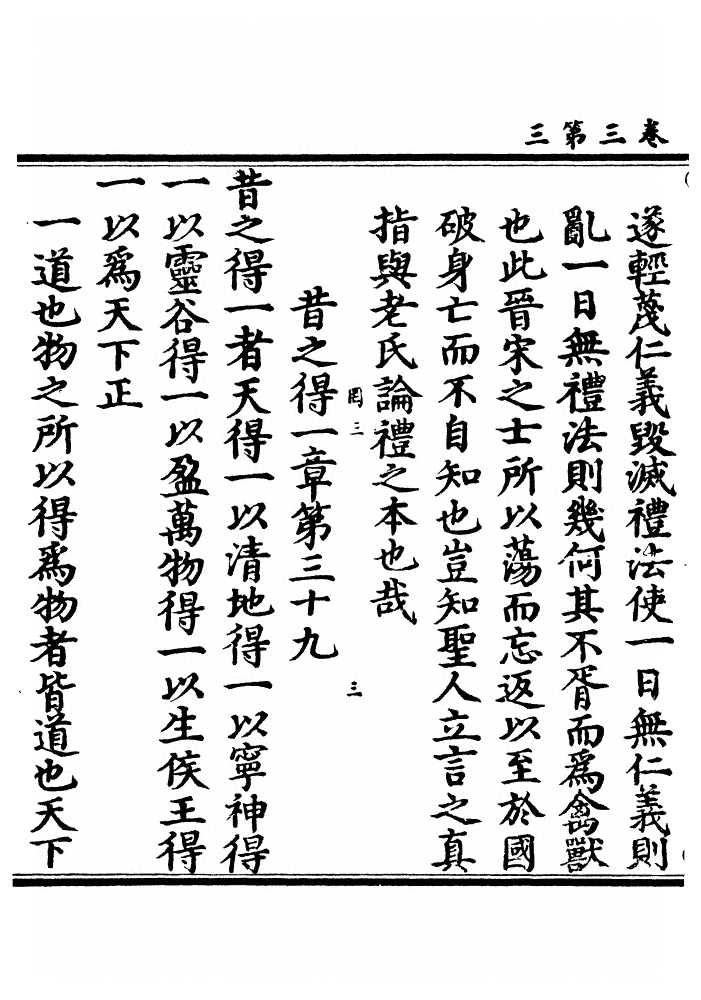 卷三第三
遂輕蔑仁義毀滅禮法使一日無仁義則
亂一日無禮法則幾何其不胥而爲禽獸
也此晉宋之士所以蕩而忘返以至於國
破身亡而不自知也豈知聖人立言之真
指與老氏論禮之本也哉
罔三
三
昔之得一章第三十九
昔之得一者天得一以清地得一以寧神得
一以靈谷得一以盈萬物得一以生侯王得
一以爲天下正
一道也物之所以得爲物者皆道也天下